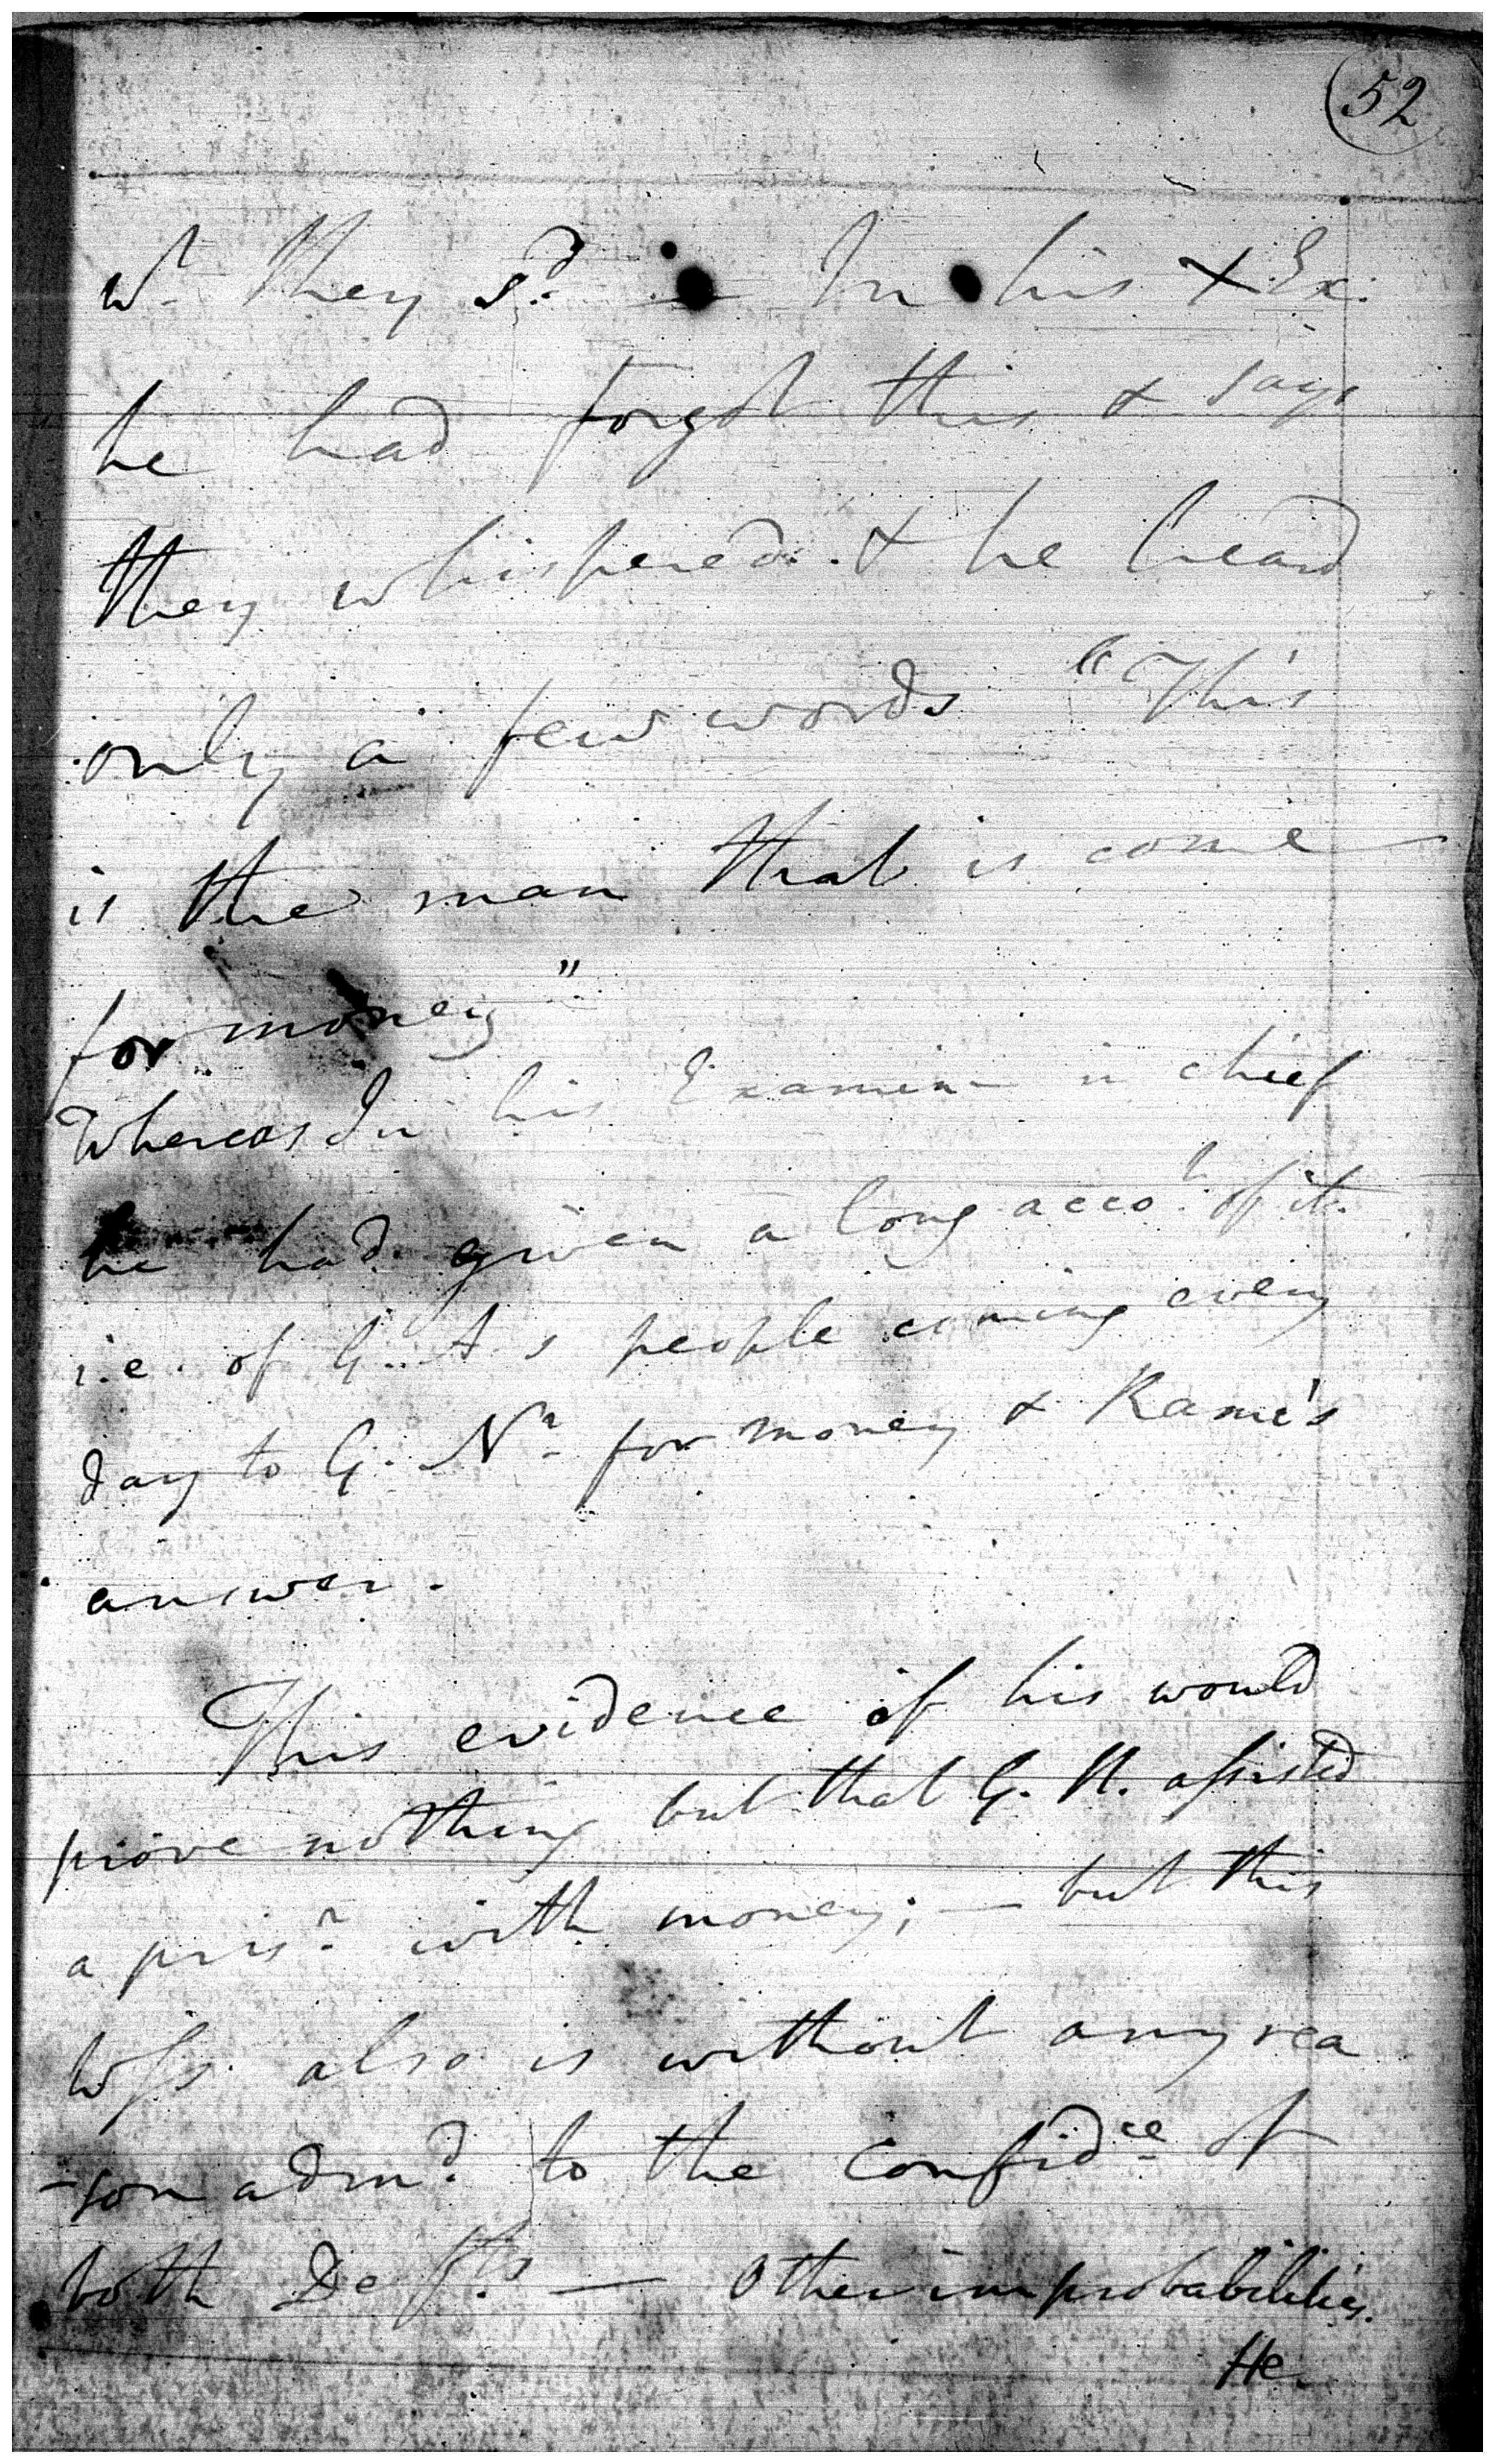 52
wt. they sd. — In his X Ex.
he had forgot this & says
they whispered & he heard
only a few words "This
is the man that is come
for money"
Whereas In his Examin in chief
he had given a long accot. of it.
i.e. of G. A.s people coming every
day to G. Nr. for money &
answer.
This evidence of his would
prove nothing but that G. N. assisted
a prisr. with money; — but this
Wss also is without any rea
-son admd. to the Confidce of
both Defts — Other improbabilities.
He